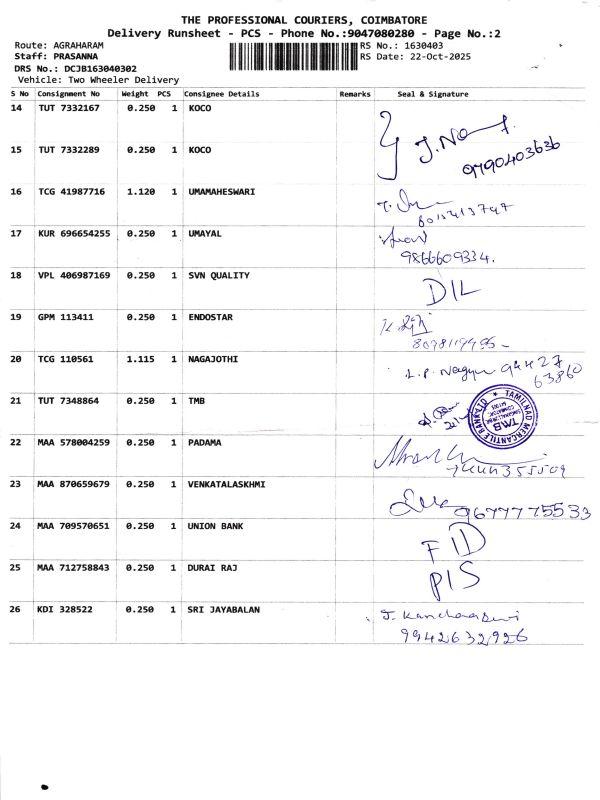 THE PROFESSIONAL COURIERS, COIMBATORE
Delivery Runsheet - PCS - Phone No.:9047080280 - Page No.:2
Route: AGRAHARAM RS No.: 1630403
Staff: PRASANNA RS Date: 22-Oct-2025
DRS No.: DCJB163040302
Vehicle: Two Wheeler Delivery
S No Consignment No Weight PCS Consignee Details Remarks Seal & Signature
14 TUT 7332167 0.250 1 KOCO
15 TUT 7332289 0.250 1 KOCO
9790403636
16 TCG 41987716 1.120 1 UMAMAHESWARI
17 KUR 696654255 0.250 1 UMAYAL
9866609334.
18 VPL 406987169 0.250 1 SVN QUALITY DIL
19 GPM 113411 0.250 1 ENDOSTAR
20 TCG 110561 1.115 1 NAGAJOTHI L.P. 94427
63860
21 TUT 7348864 0.250 1 TMB TAMILNAD MERCANTILE BANK LTD TMB
22 MAA 578004259 0.250 1 PADAMA
23 MAA 870659679 0.250 1 VENKATALASKHMI 9677775533
24 MAA 709570651 0.250 1 UNION BANK
25 MAA 712758843 0.250 1 DURAI RAJ PIS
26 KDI 328522 0.250 1 SRI JAYABALAN
9942632926